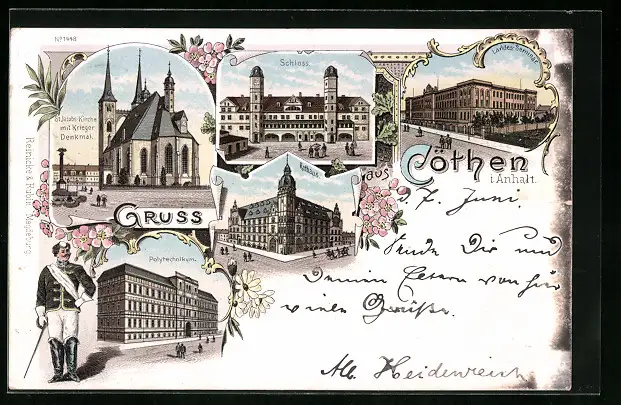 No 1448
Schloss.
Landes-Seminar
St. Jacobs-Kirche
mit Krieger
Denkmal.
Rathaus.
GRUSS
aus
Cöthen
i. Anhalt.
Polytechnikum.
Reinicke & Rubin, Magdeburg
d. 7. Juni.
Sende Dir und
Deinen Eltern von hier
viele Grüße.
Alb. Heidenreich